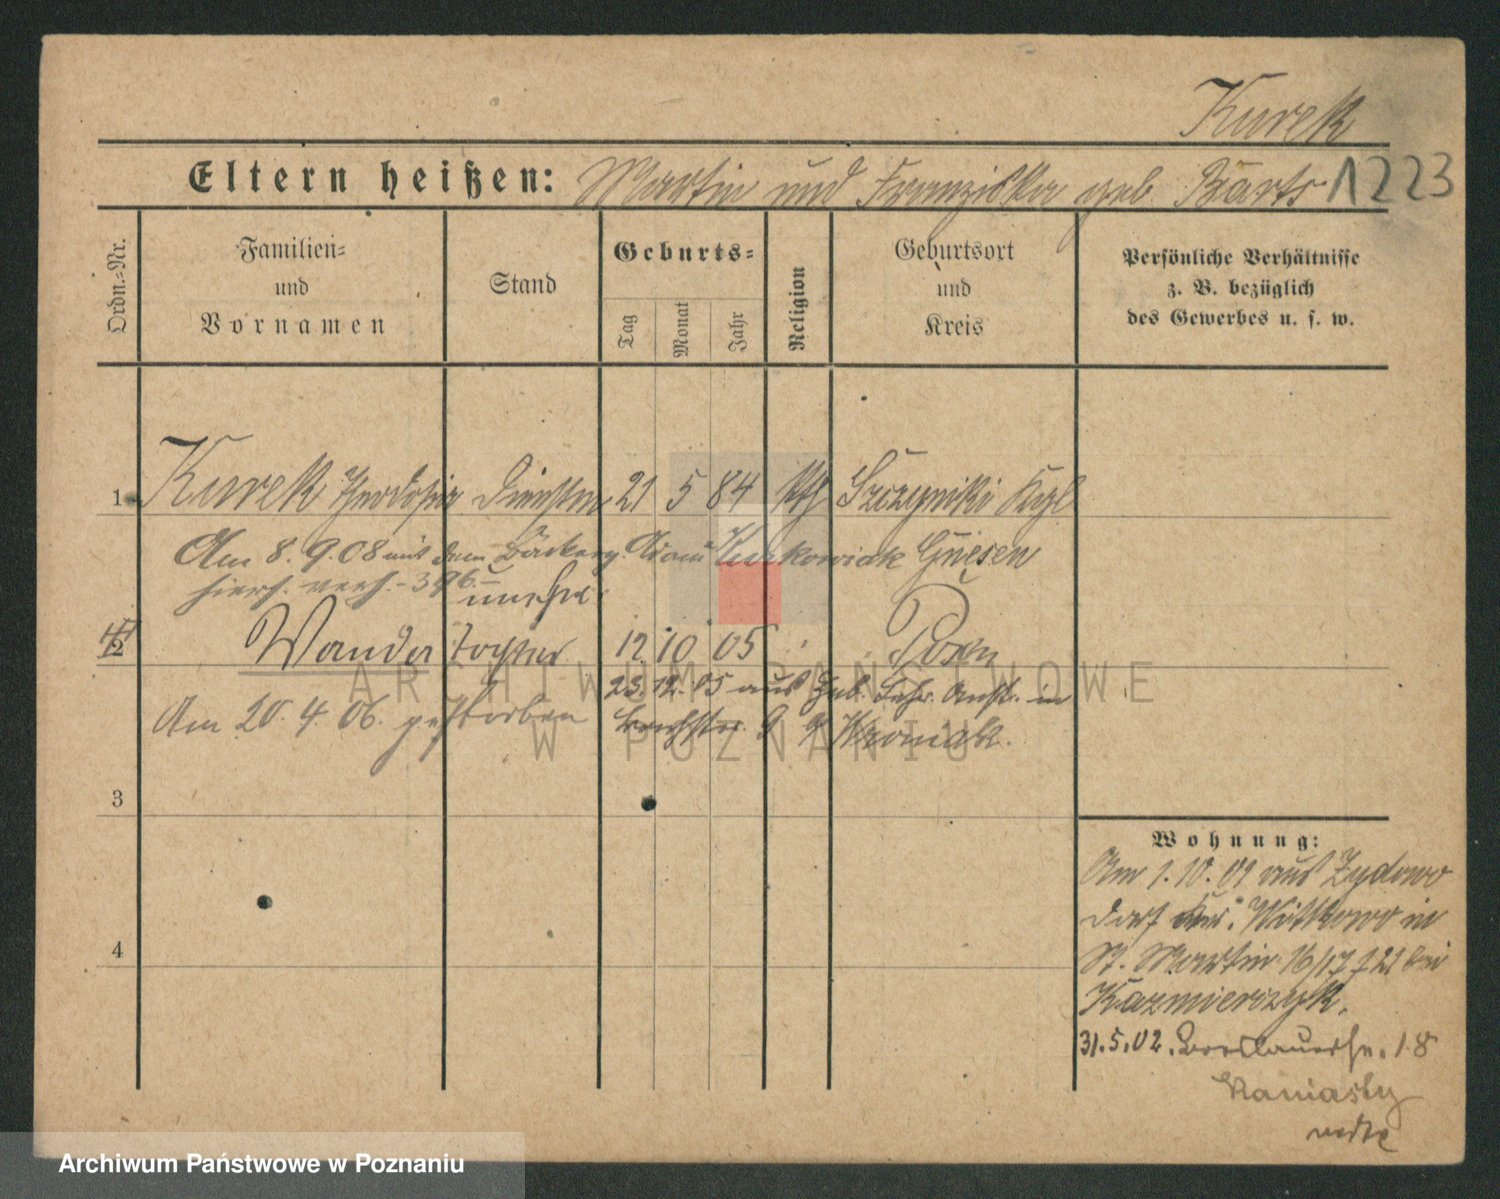 Kurek
Eltern heißen: Martin und Franziska geb. Barts 1223
Ordn.=Nr.
Familien=
und
Vornamen
Stand
Geburts=
Tag
Monat
Jahr
Religion
Geburtsort
und
Kreis
Persönliche Verhältnisse
z. B. bezüglich
des Gewerbes u. s. w.
1 Kurek Theodosia Dienstm 21 5 84 kth Szczytniki
Am 8. 9. 08 mit dem Bäckerg. Adam Gnesen
hiers. verh. - 396.
unehel.
2 Wanda Tochter 12 10 05 Posen
23. 12. 05 aus Heb. Lehr. Anst. in
Am 20. 4. 06. gestorben
3
4
Wohnung:
Am 1. 10. 01 aus Zydowo
Dorf Kr. Witkowo in
St. Martin 16/17 bei
Kazmierczyk.
31. 5. 02. Breslauerstr. 18
ARCHIWUM PAŃSTWOWE
W POZNANIU
Archiwum Państwowe w Poznaniu